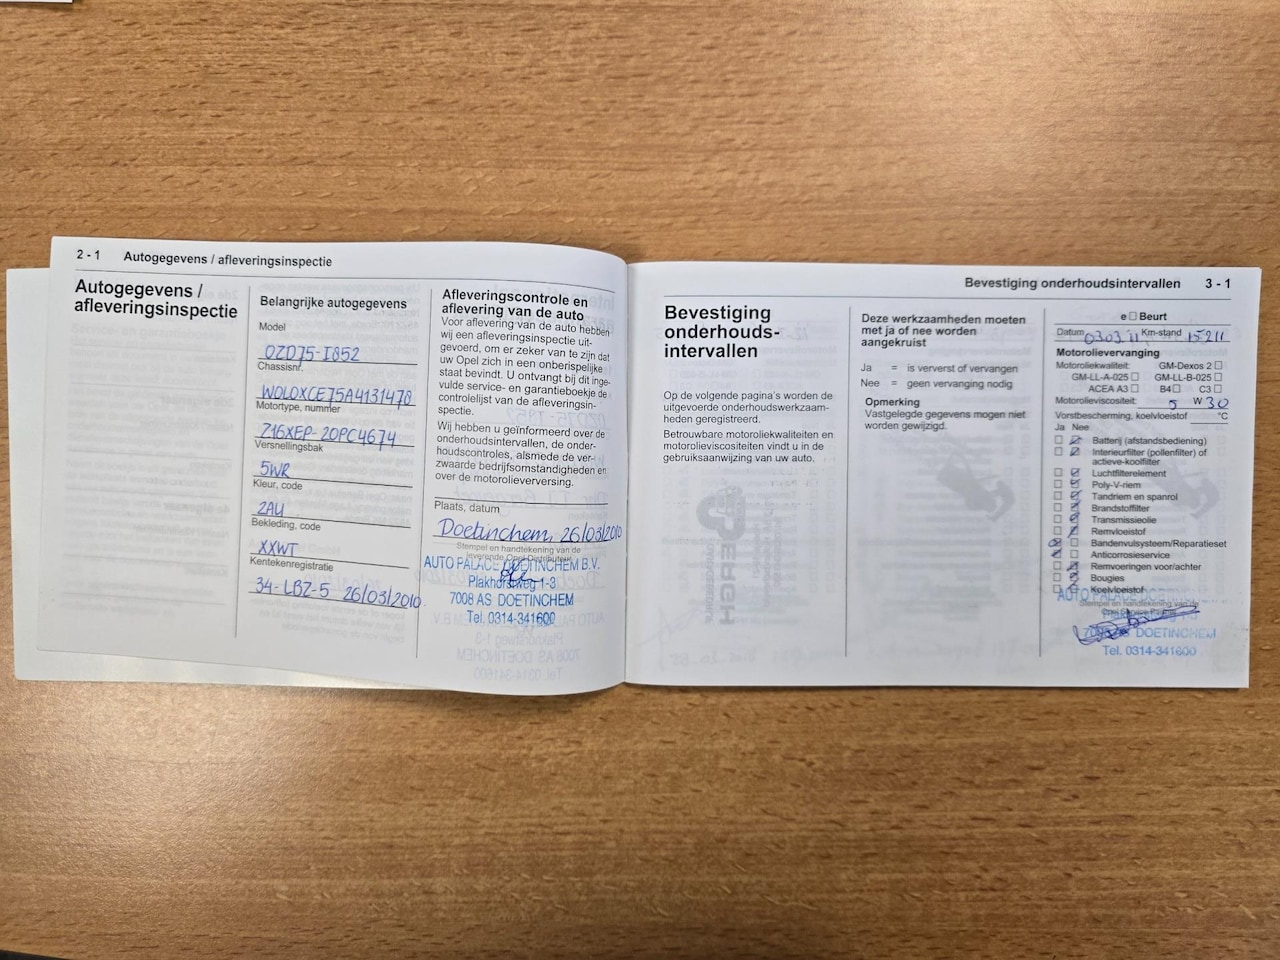 2 - 1 Autogegevens / afleveringsinspectie
Autogegevens /
afleveringsinspectie
Belangrijke autogegevens
Model
0ZD75-I852
Chassisnr.
W0L0XCE75A4131470
Motortype, nummer
Z16XEP-20PC4674
Versnellingsbak
5WR
Kleur, code
2AU
Bekleding, code
XXWT
Kentekenregistratie
34-LBZ-5 26/03/2010
Afleveringscontrole en
aflevering van de auto
Voor aflevering van de auto hebben
wij een afleveringsinspectie uit-
gevoerd, om er zeker van te zijn dat
uw Opel zich in een onberispelijke
staat bevindt. U ontvangt bij dit inge-
vulde service- en garantieboekje de
controlelijst van de afleveringsin-
spectie.
Wij hebben u geïnformeerd over de
onderhoudsintervallen, de onder-
houdscontroles, alsmede de ver-
zwaarde bedrijfsomstandigheden en
over de motorolieverversing.
Plaats, datum
Doetinchem, 26/03/2010
Stempel en handtekening van de
leverende Opel-Distributeur
AUTO PALACE DOETINCHEM B.V.
Plakhorstweg 1-3
7008 AS DOETINCHEM
Tel. 0314-341600
Bevestiging onderhoudsintervallen 3 - 1
Bevestiging
onderhouds-
intervallen
Op de volgende pagina's worden de
uitgevoerde onderhoudswerkzaam-
heden geregistreerd.
Betrouwbare motoroliekwaliteiten en
motorolieviscositeiten vindt u in de
gebruiksaanwijzing van uw auto.
Deze werkzaamheden moeten
met ja of nee worden
aangekruist
Ja = is ververst of vervangen
Nee = geen vervanging nodig
Opmerking
Vastgelegde gegevens mogen niet
worden gewijzigd.
e Beurt
Datum 03.03.'11 Km-stand 15211
Motorolievervanging
Motoroliekwaliteit: GM-Dexos 2
GM-LL-A-025 GM-LL-B-025
ACEA A3 B4 C3
Motorolieviscositeit: 5 W 30
Vorstbescherming, koelvloeistof °C
Ja Nee
Batterij (afstandsbediening)
Interieurfilter (pollenfilter) of
actieve-koolfilter
Luchtfilterelement
Poly-V-riem
Tandriem en spanrol
Brandstoffilter
Transmissieolie
Remvloeistof
Bandenvulsysteem/Reparatieset
Anticorrosieservice
Remvoeringen voor/achter
Bougies
Koelvloeistof
AUTO PALACE DOETINCHEM
Stempel en handtekening van de
7008 AS DOETINCHEM
Tel. 0314-341600